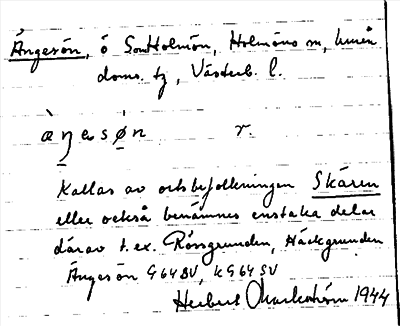 Ängesön, ö SmHolmön, Holmöns sn, Umeå
doms. tg, Västerb. l.
àŋesøn r.
Kallas av ortsbefolkningen Skären
eller också benämnes enstaka delar
därav t.ex. Rönngrunden, Häckgrunden
Ängesön G64BV, KG64SV
Herbert Markström 1944